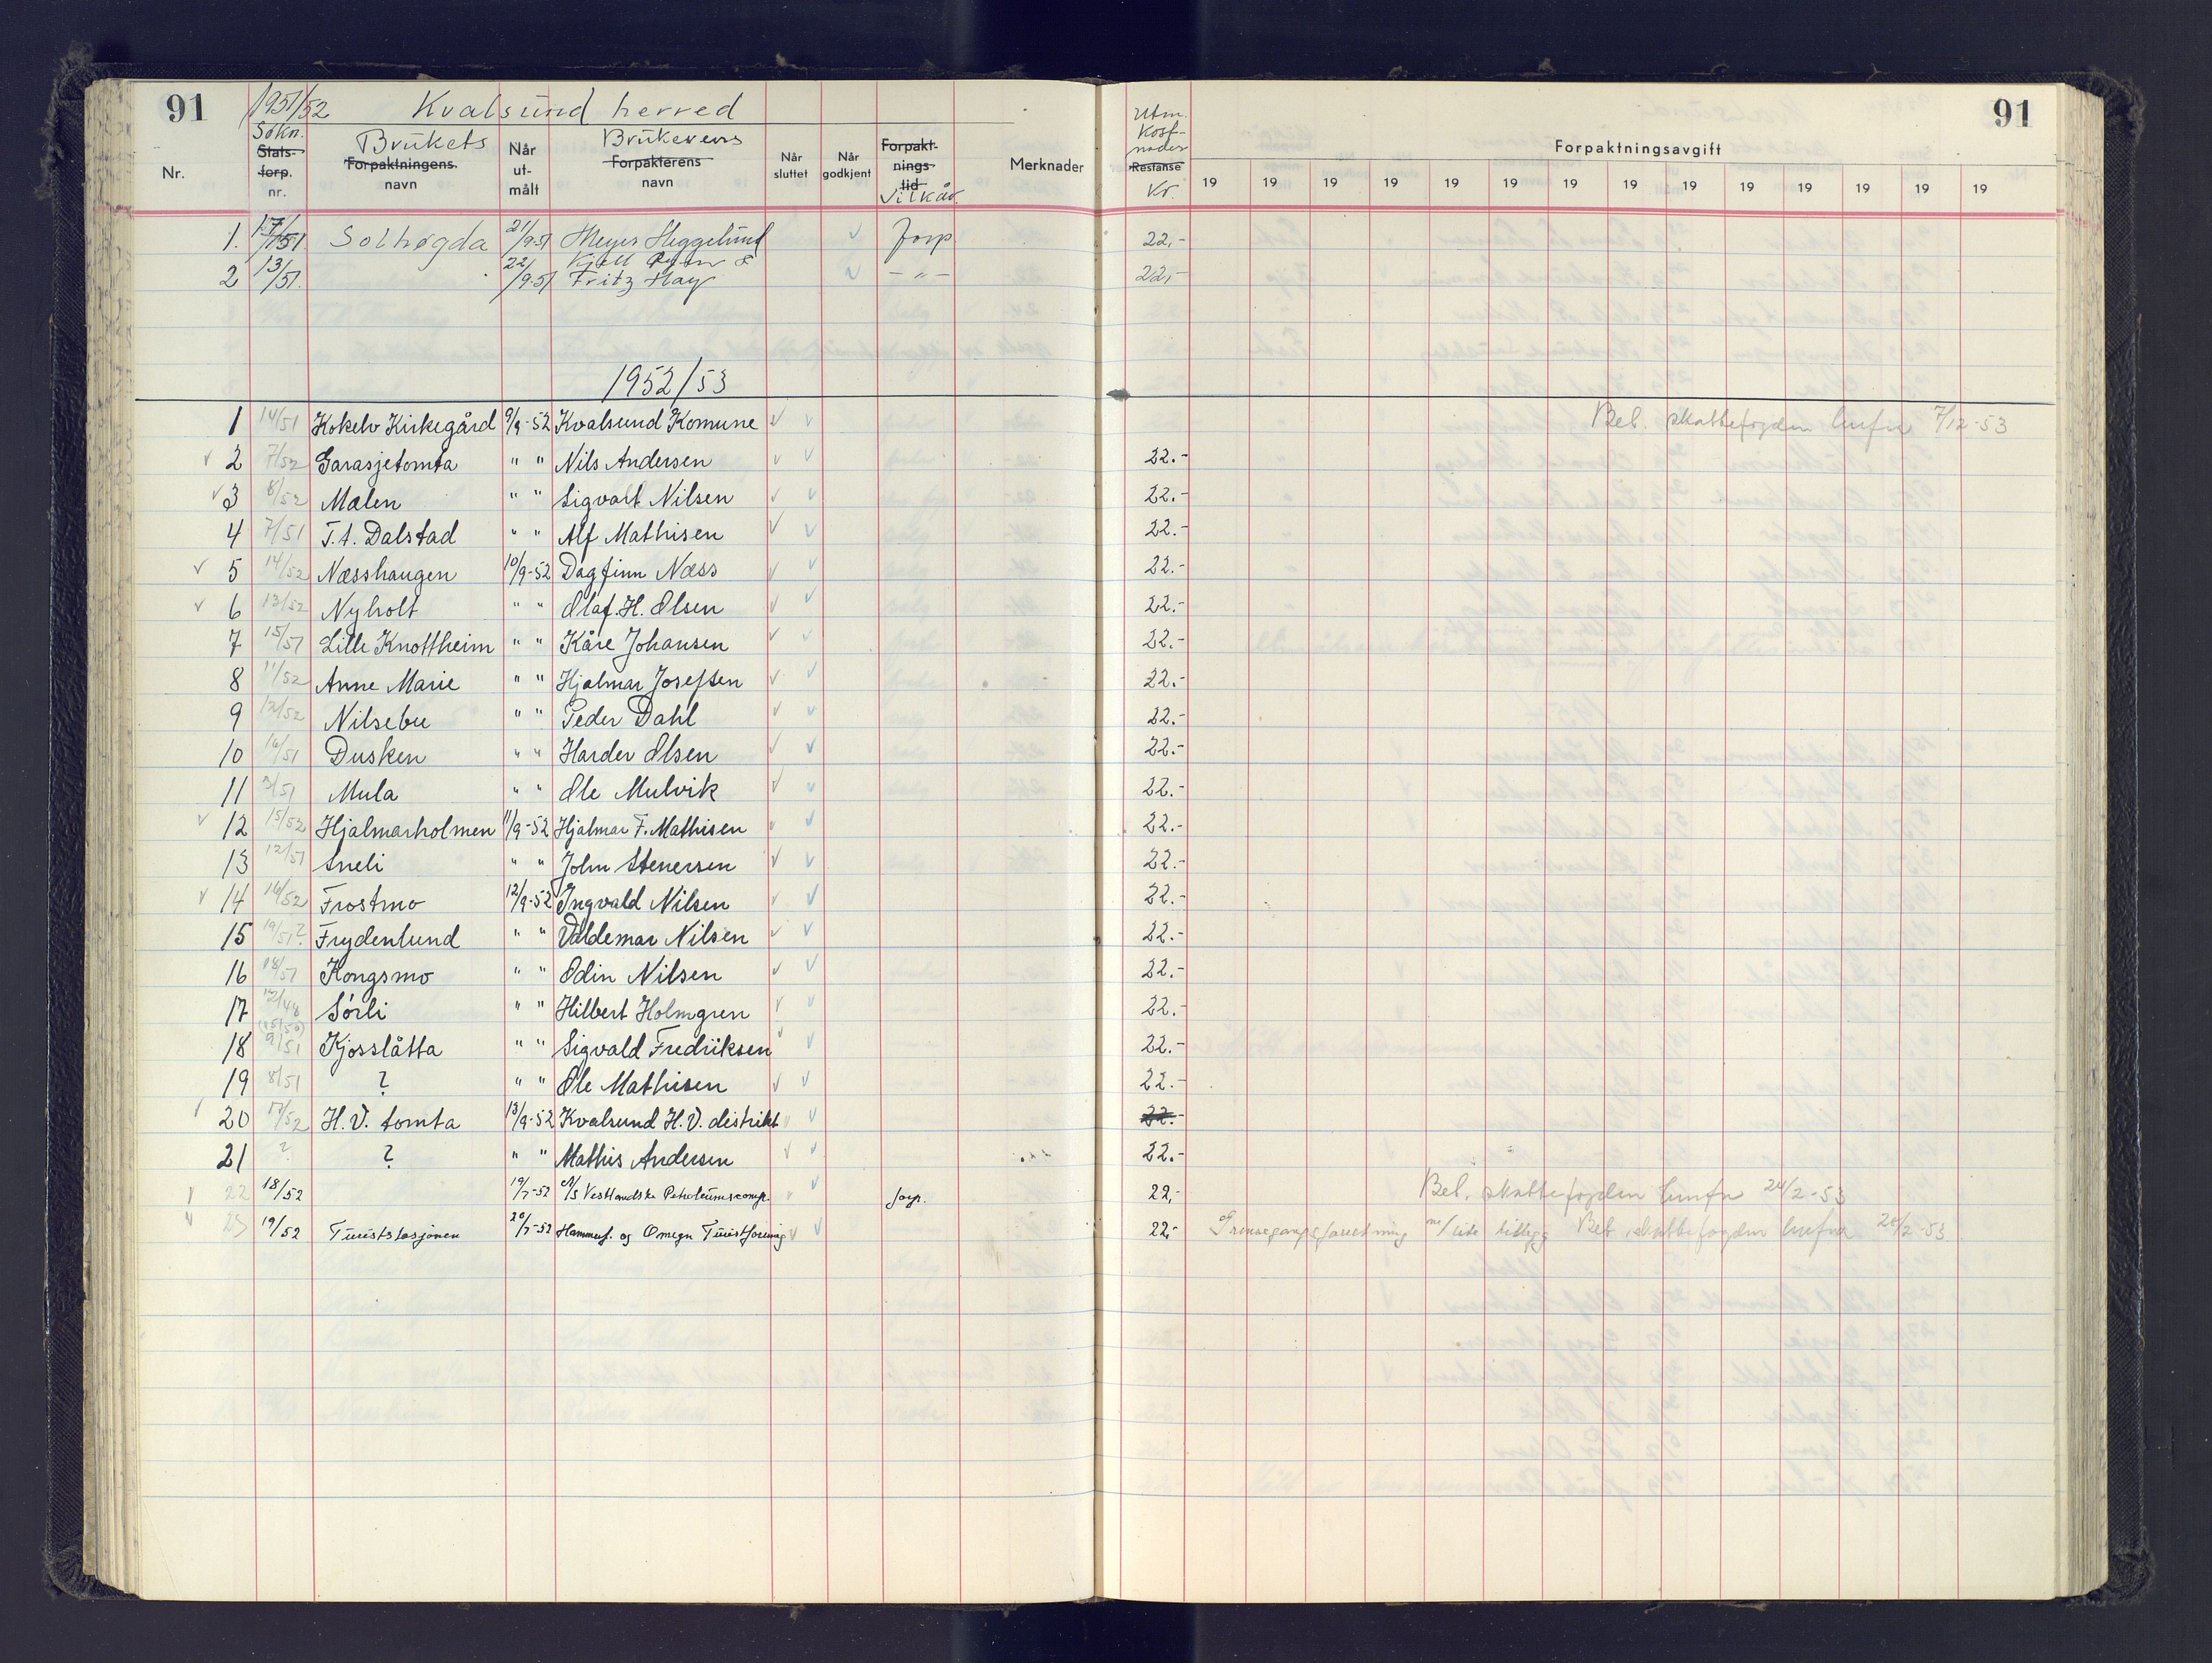 91 1951/52 Kvalsund herred 91
Nr. Søkn. Stats-forp. nr. Brukets Forpaktningens navn Når ut-målt Brukerens Forpakterens navn Når sluttet Når godkjent Forpakt-nings-tid Vilkår. Merknader Utm. kost-nader Restanse Kr. Forpaktningsavgift
19 19 19 19 19 19 19 19 19 19 19 19 19 19
1. 17/51 Solhøgda 21/9-51 Meyer Heggelund forp 22,-
2 13/51. 22/9-51 Kjell & Fritz Hay -"- 22,-
1952/53
1 14/51 Kokelv Kirkegård 9/9-52 Kvalsund Komune Bet. skattefogden 7/12-53
2 7/52 Garasjetomta " " Nils Andersen 22.-
3 8/52 Malen " " Sigvart Nilsen 22.-
4 7/51 T.t. Dalstad " " Alf Mathisen 22.-
5 14/52 Næsshaugen 10/9-52 Dagfinn Næss 22.-
6 13/52 Nyholt " " Olaf. H. Olsen 22.-
7 15/51 Lille Knottheim " " Kåre Johansen 22.-
8 11/52 Anne Marie " " Hjalmar Josefsen 22.-
9 12/52 Nilsebu " " Peder Dahl 22.-
10 16/51 Dusken " " Harder Olsen 22.-
11 2/51 Mula " " Ole Mulvik 22.-
12 15/52 Hjalmarholmen 11/9-52 Hjalmar F. Mathisen 22.-
13 12/51 Sneli " " John Stenersen 22.-
14 16/52 Frostmo 12/9-52 Ingvald Nilsen 22.-
15 19/51? Frydenlund " " Valdemar Nilsen 22.-
16 18/51 Kongsmo " " Odin Nilsen 22.-
17 12/48 Sørli " " Hilbert Holmgren 22.-
18 (15/50) 9/51 Kjosslåtta " " Sigvald Fredriksen 22.-
19 8/51 ? " " Ole Mathisen 22.-
20 17/52 H.V. tomta 13/9-52 Kvalsund H.V. distrikt 22.-
21 ? ? " " Mathis Andersen 22.-
22 18/52 19/7-52 A/S Vestlandske Petroleumscomp. forp. 22,- Bet. skattefogden 24/2-53
23 19/52 Turiststasjonen 20/7-52 Hammerf. og Omegn Turistforening 22,- Grensegangsforretning Bet. skattefogden 20/2-53